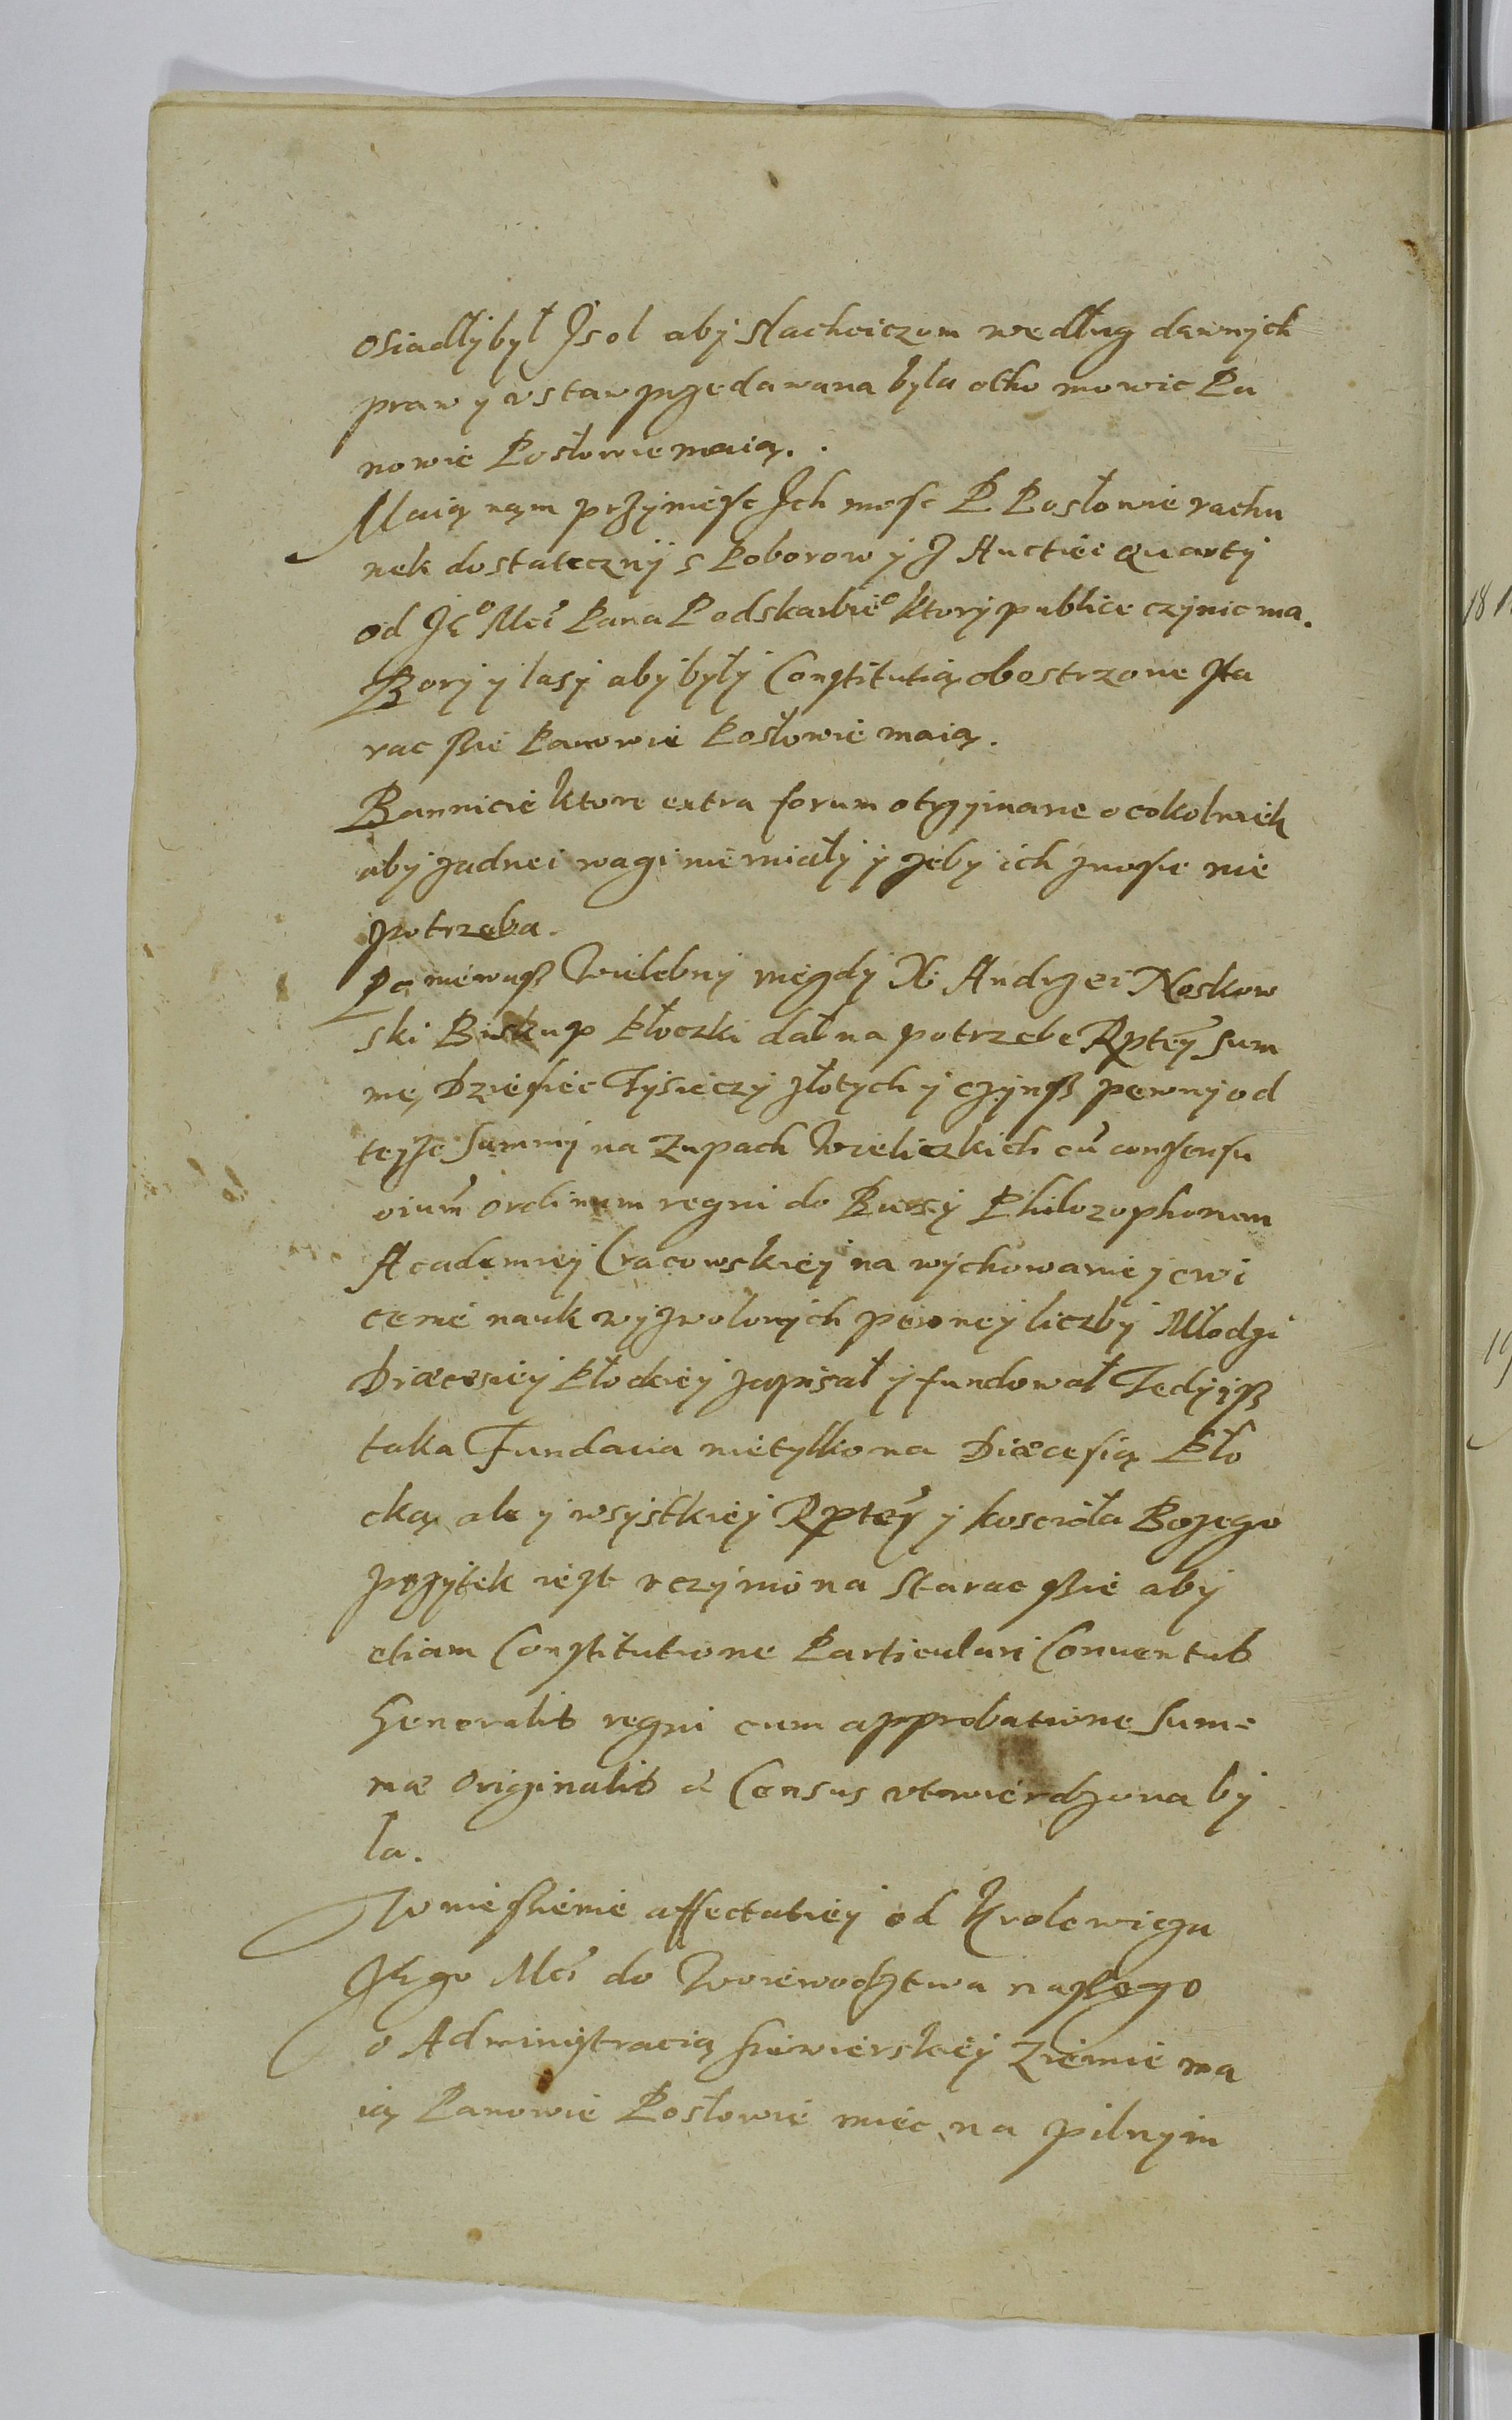 osiadły był J sol aby slachciczom według dawnych
praw y vstaw przedawana była otho mowic Pa
nowie Posłowie maią.
Maią nąm przyniesc Ich mosc P Posłowie rachu
nek dostateczny s Poborow y z Auctiei quarty
od Jeº Mci Pana Podskarbieº ktory publice czynic ma.
Bory y lasy aby były Constitutią obostrzone sta
rac sie Panowie Posłowie maią.
Bannicie ktore extra forum otrzymane o cokolwiek
aby zadnei wagi nie miały y zeby ich znosic nie
potrzeba.
Poniewasz Wielebny niegdy X. Andrzei Noskow
ski Biskup Płoczki dał na potrzebe Rptey Sum
mę Dziesiec Tysieczy złotych y czynsz pewny od
teyze Summy na Zupach Wieliczkich cu consensu
oium ordinum regni do Bursy Philozophorum
Academiey Cracowskiey na wychowanie y cwi
cenie nauk wyzwolonych pewney liczby Młodzi
Diœcesiey Płockiey zapisał y fundował Tedy isz
taka Fundacia nietylko na Diœcesią Pło
cką ale y wszystkiey Rptey y koscioła Bozego
pozytek iest vczyniona starac sie aby
etiam Constitutione Particulari Conuentus
Generalis regni cum approbatione Sum-
mæ Originalis et Census vtwierdzona by
ła.
Wniesienie affectatiey od Krolewicza
Jego Mci do Woiewodztwa naszego
o Administracią Siewierskiey Ziemie ma
ią Panowie Posłowie miec na pilnym
18
19